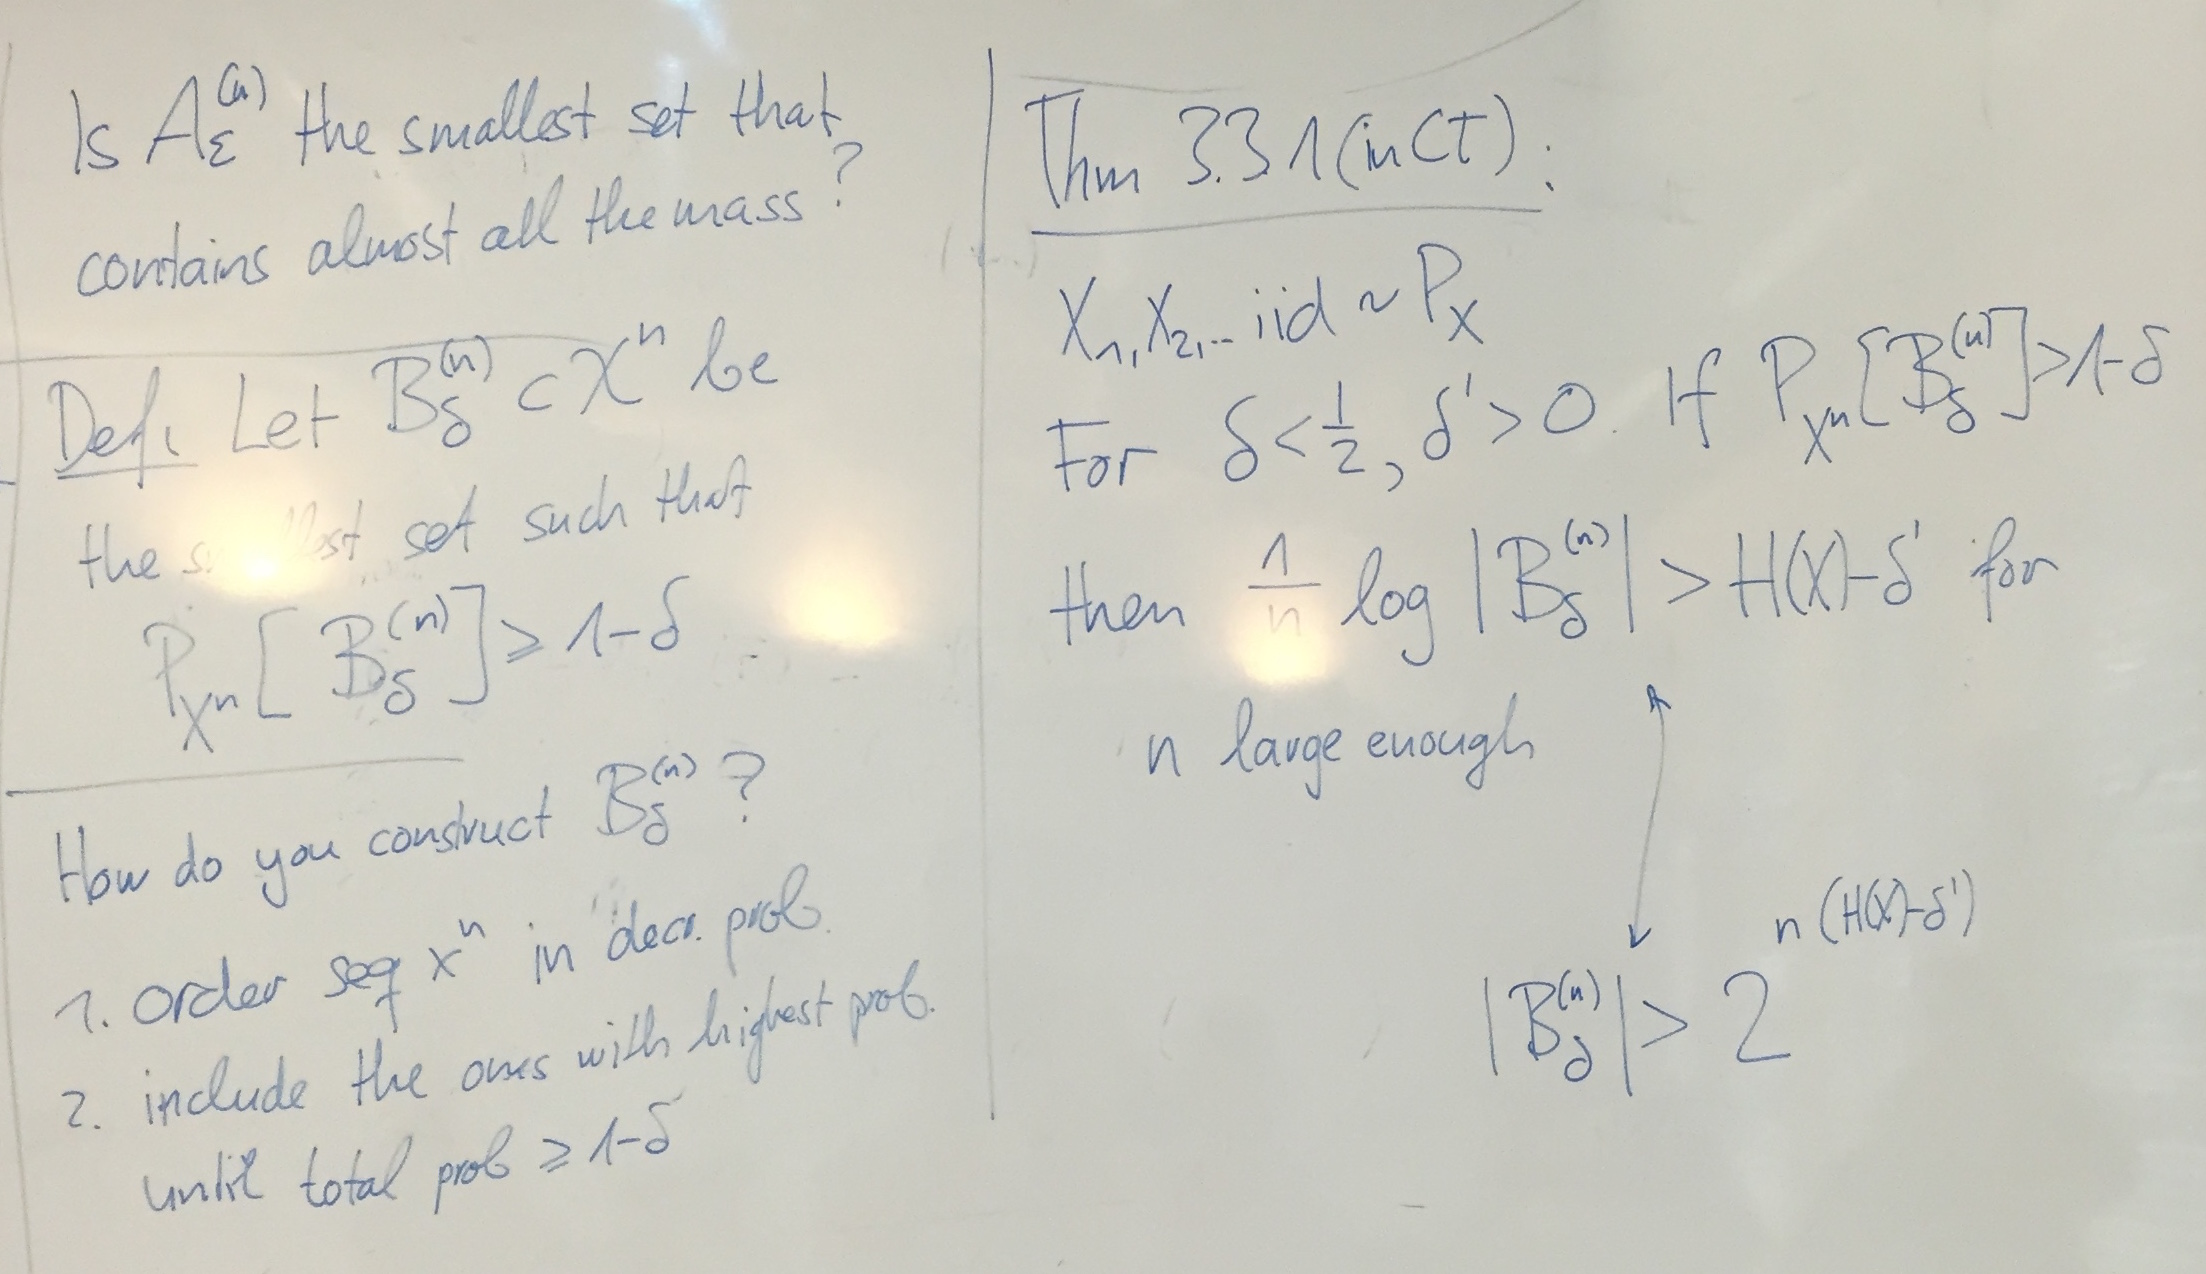 Is A_ε^(n) the smallest set that
contains almost all the mass?
Def: Let B_δ^(n) ⊂ X^n be
the smallest set such that
P_{X^n}[B_δ^(n)] ≥ 1-δ
How do you construct B_δ^(n)?
1. order seq x^n in decr. prob.
2. include the ones with highest prob.
until total prob ≥ 1-δ
Thm 3.3.1 (in CT):
X_1, X_2, ... iid ~ P_X
For δ < 1/2, δ' > 0. If P_{X^n}[B_δ^(n)] > 1-δ
then 1/n log |B_δ^(n)| > H(X)-δ' for
n large enough
|B_δ^(n)| > 2^{n(H(X)-δ')}